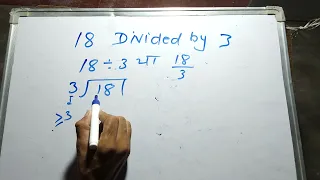 18 Divided by 3
18 ÷ 3 या 18/3
3 √18
≥3